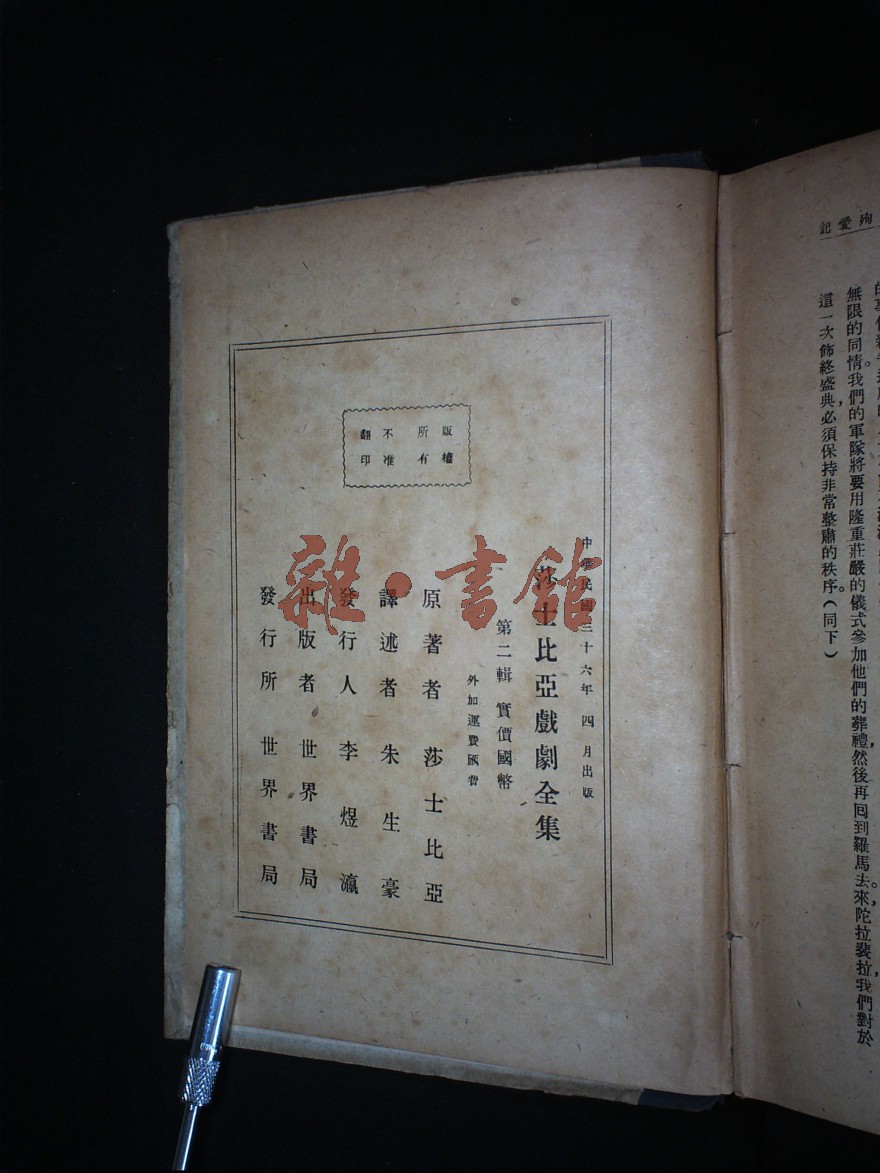 殉愛記
無限的同情。我們的軍隊將要用隆重莊嚴的儀式參加他們的葬禮，然後再回到羅馬去。來，陀拉裴拉，我們對於
這一次飾終盛典，必須保持非常整肅的秩序。（同下）
版權所有
不准翻印
中華民國三十六年四月出版
莎士比亞戲劇全集
第二輯 實價國幣
外加運費匯費
原著者 莎士比亞
譯述者 朱生豪
發行人 李煜瀛
出版者 世界書局
發行所 世界書局
雜·書館